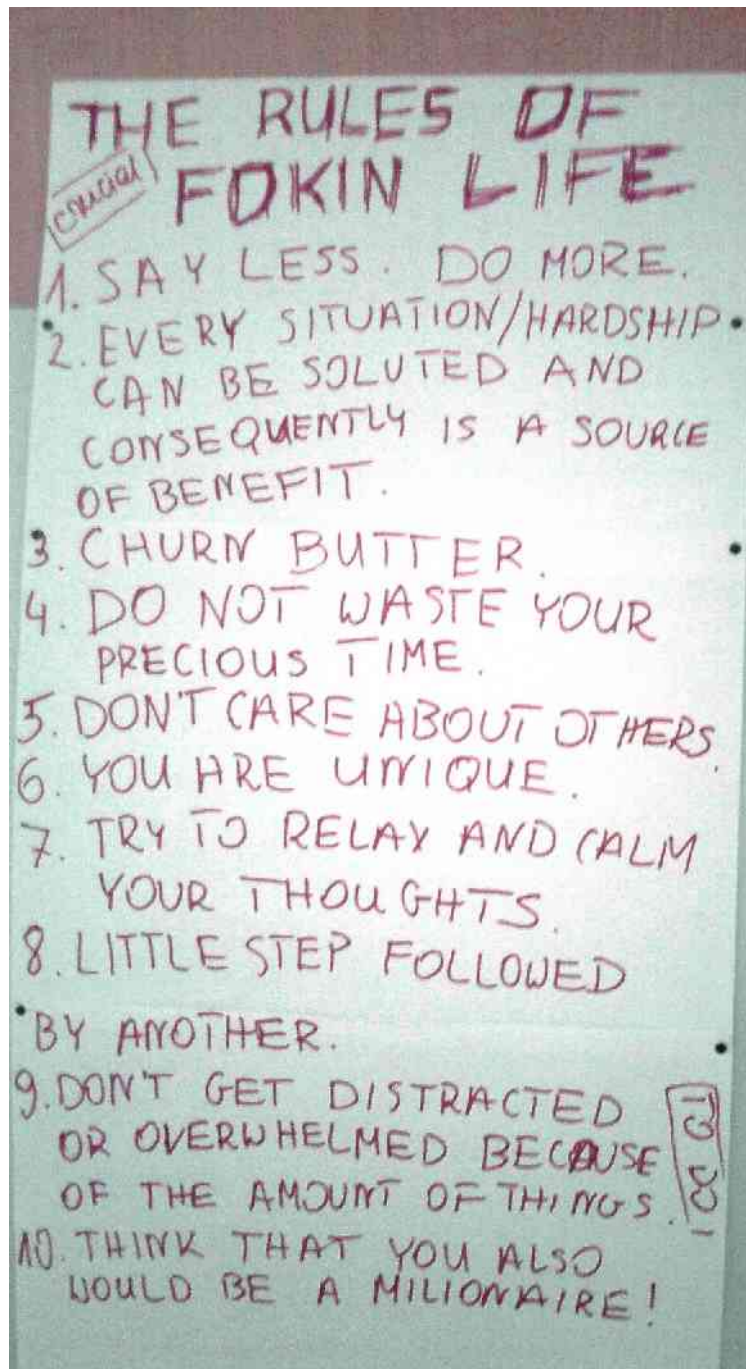 THE RULES OF
crucial
FOKIN LIFE
1. SAY LESS. DO MORE.
2. EVERY SITUATION/HARDSHIP
CAN BE SOLUTED AND
CONSEQUENTLY IS A SOURCE
OF BENEFIT.
3. CHURN BUTTER.
4. DO NOT WASTE YOUR
PRECIOUS TIME.
5. DON'T CARE ABOUT OTHERS.
6. YOU ARE UNIQUE.
7. TRY TO RELAX AND CALM
YOUR THOUGHTS.
8. LITTLE STEP FOLLOWED
BY ANOTHER.
9. DON'T GET DISTRACTED
OR OVERWHELMED BECAUSE
OF THE AMOUNT OF THINGS.
10. THINK THAT YOU ALSO
WOULD BE A MILIONAIRE!